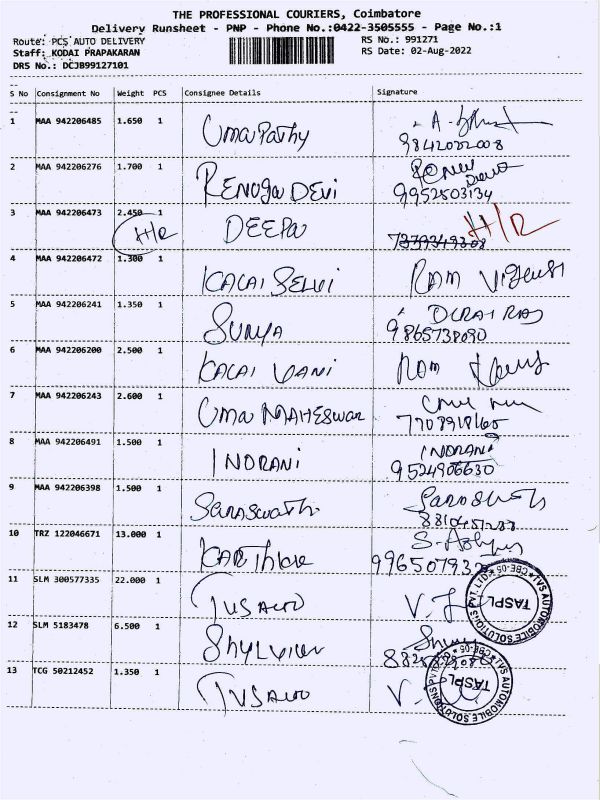 THE PROFESSIONAL COURIERS, Coimbatore
Delivery Runsheet - PNP - Phone No.:0422-3505555 - Page No.:1
Route: PCS AUTO DELIVERY RS No.: 991271
Staff: KODAI PRAPAKARAN RS Date: 02-Aug-2022
DRS No.: DCJB99127101
S No Consignment No Weight PCS Consignee Details Signature
1 MAA 942206485 1.650 1 Uma Pathy
9842022008
2 MAA 942206276 1.700 1 RENUGA DEVI
9952503134
3 MAA 942206473 2.450 1 DEEPA H/R
H/R 7379349308
4 MAA 942206472 1.300 1 KALAI SELVI RAM
5 MAA 942206241 1.350 1 SURYA DURAI RAJ
9865738090
6 MAA 942206200 2.500 1 KALAI VANI RAM
7 MAA 942206243 2.600 1 Uma MAHESWARI
7708918165
8 MAA 942206491 1.500 1 INDRANI INDRANI
9524906630
9 MAA 942206398 1.500 1 Saraswathi
10 TRZ 122046671 13.000 1 KARTHICK
11 SLM 300577335 22.000 1 TVS AUTO V.
12 SLM 5183478 6.500 1
13 TCG 50212452 1.350 1 TVS AUTO V.
TVS AUTOMOBILE SOLUTIONS PVT. LTD. CBE-05
TASPL
TVS AUTOMOBILE SOLUTIONS PVT.
TASPL